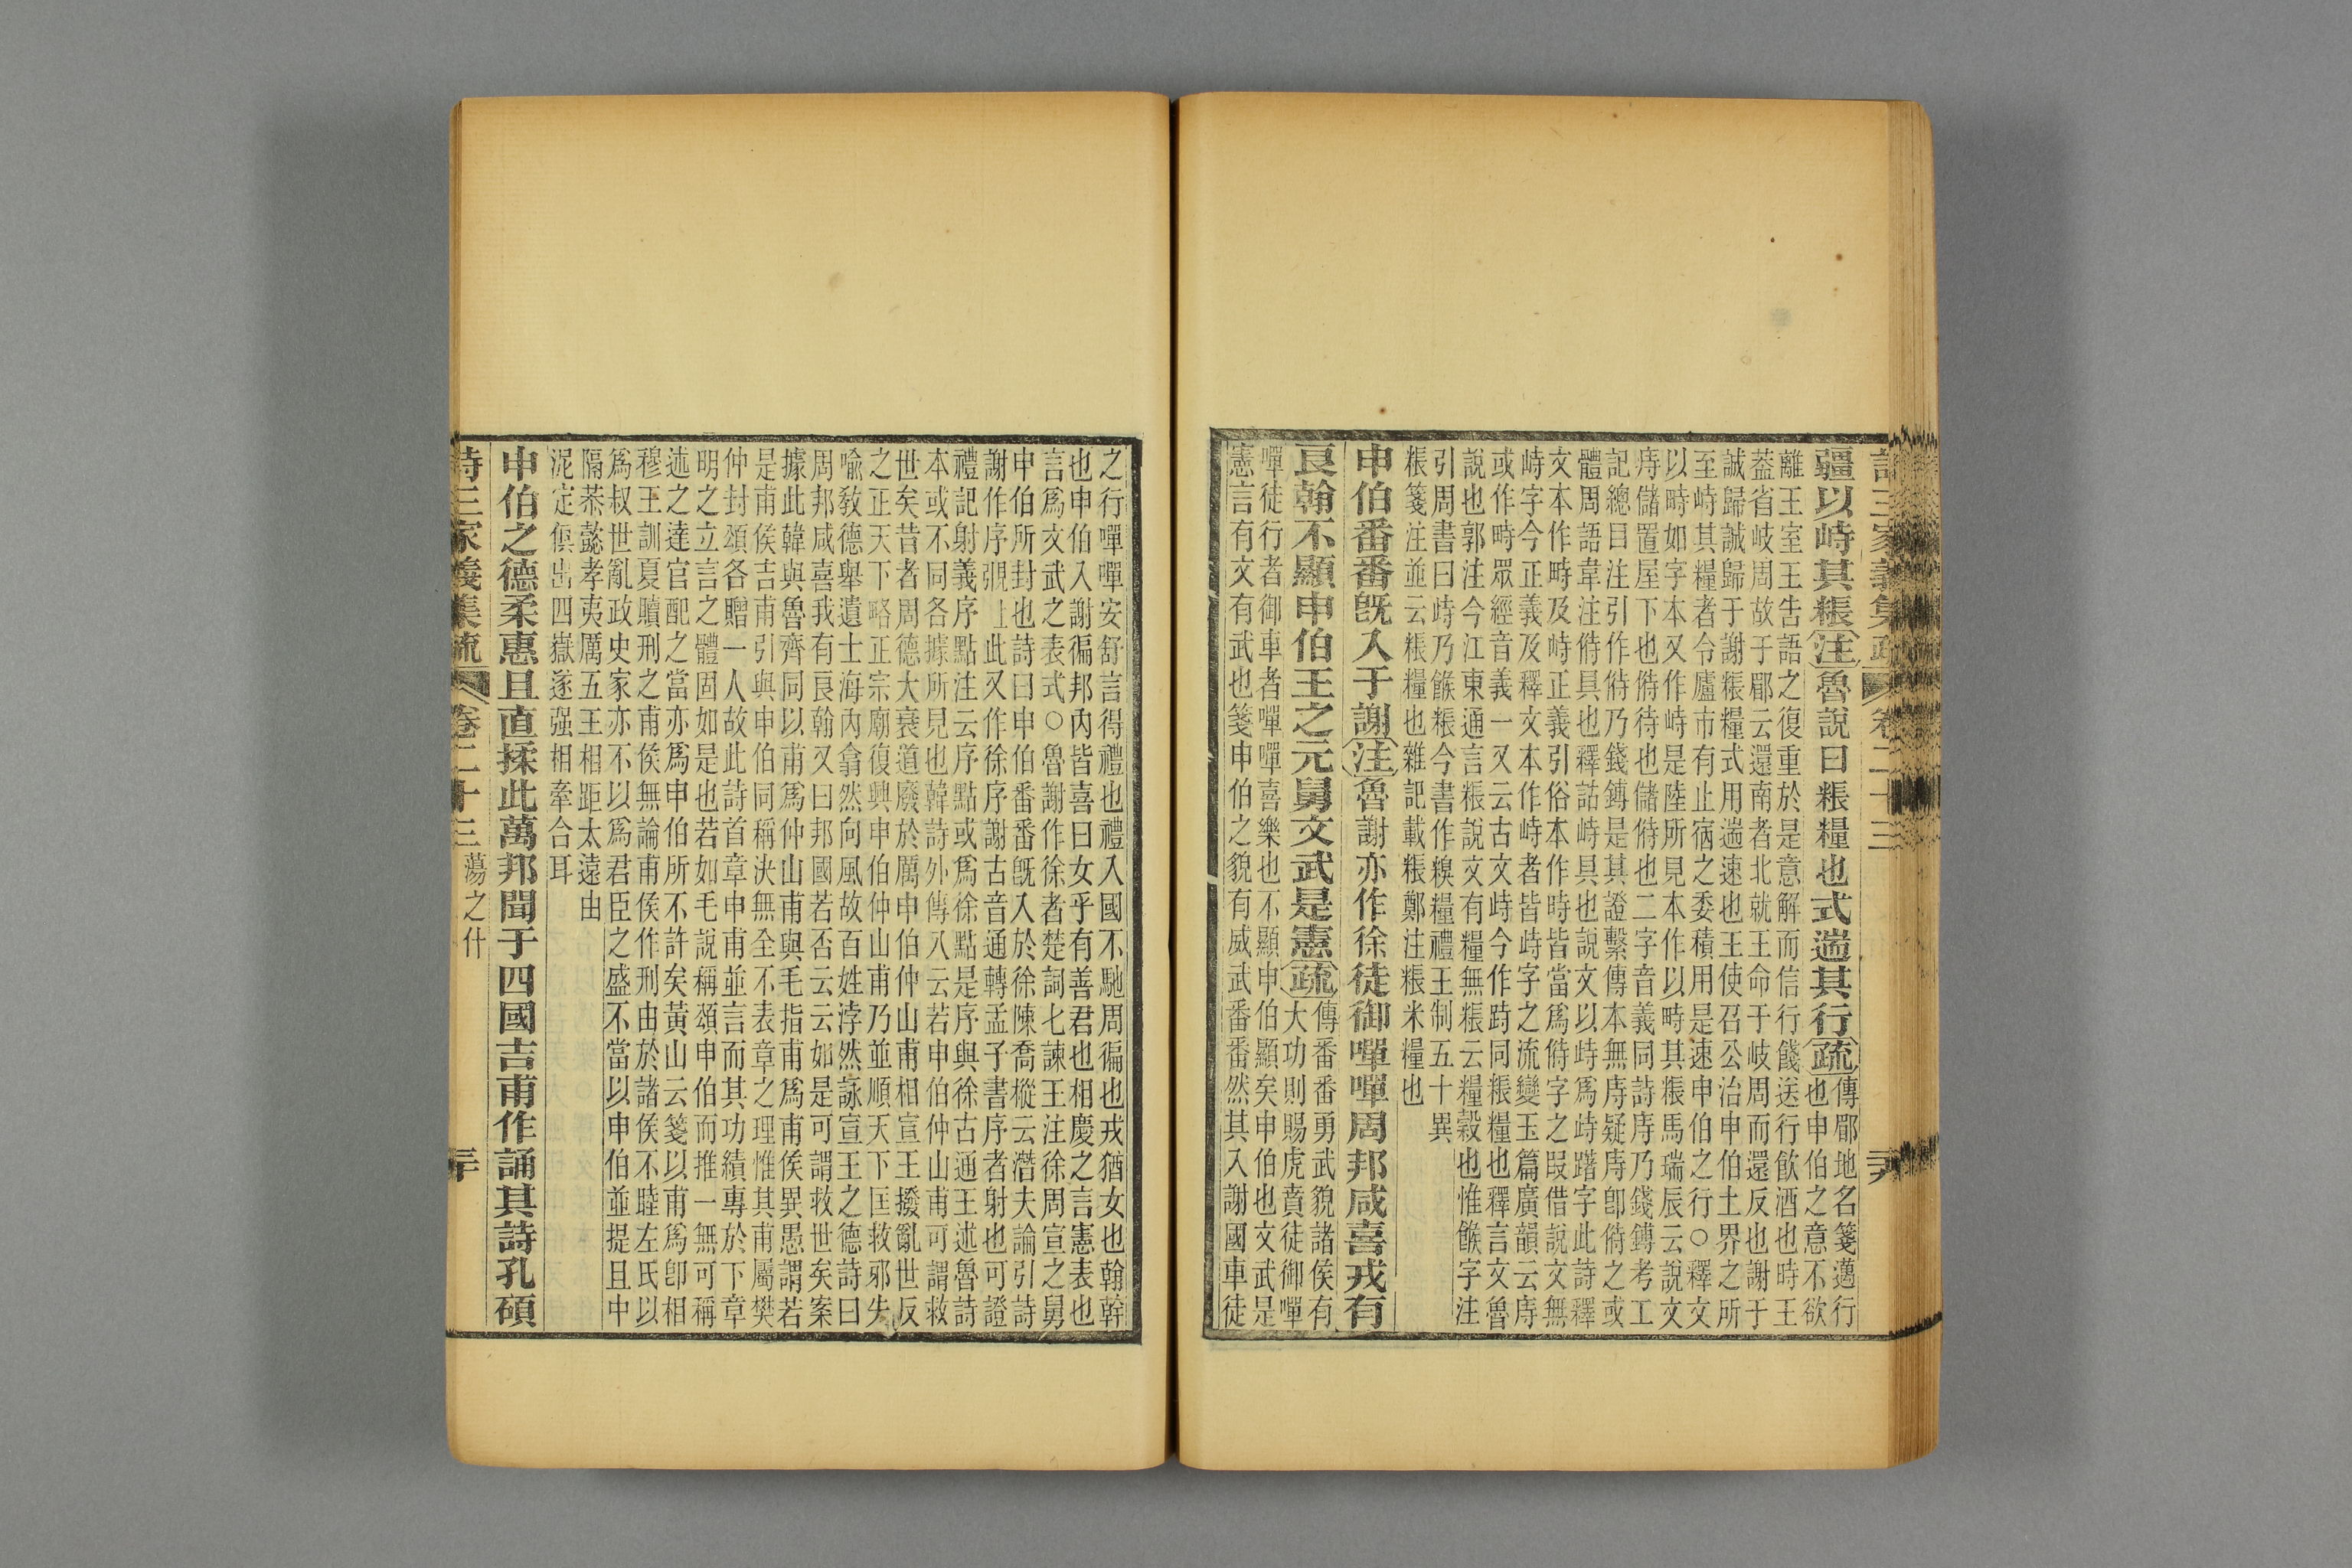 詩三家義集疏 卷二十三
疆以峙其粻注魯說曰粻糧也式遄其行疏傳郿地名箋邁行
也申伯之意不欲
離王室王告語之復重於是意解而信行餞送行飲酒也時王
葢省岐周故于郿云還南者北就王命于岐周而還反也謝于
誠歸誠歸于謝粻糧式用遄速也王使召公治申伯土界之所
至峙其糧者令廬市有止宿之委積用是速申伯之行○釋文
以時如字本又作峙是陸所見本作以時其粻馬瑞辰云說文
庤儲置屋下也偫待也儲偫也二字音義同詩庤乃錢鎛考工
記總目注引作偫乃錢鎛是其證繫傳本無庤疑庤卽偫之或
體周語韋注偫具也釋詁峙具也說文以峙爲峙躇字此詩釋
文本作時及峙正義引俗本作時皆當爲偫字之叚借說文無
峙字今正義及釋文本作峙者皆歭字之流變玉篇廣韻云庤
或作時眾經音義一又云古文歭今作跱同粻糧也釋言文魯
說也郭注今江東通言粻說文有糧無粻云糧榖也惟餱字注
引周書曰峙乃餱粻今書作糗糧禮王制五十異
粻箋注並云粻糧也雜記載粻鄭注粻米糧也
申伯番番旣入于謝注魯謝亦作徐徒御嘽嘽周邦咸喜戎有
良翰不顯申伯王之元舅文武是憲疏傳番番勇武貌諸侯有
大功則賜虎賁徒御嘽
嘽徒行者御車者嘽嘽喜樂也不顯申伯顯矣申伯也文武是
憲言有文有武也箋申伯之貌有威武番番然其入謝國車徒
之行嘽嘽安舒言得禮也禮入國不馳周徧也戎猶女也翰幹
也申伯入謝徧邦內皆喜曰女乎有善君也相慶之言憲表也
言爲文武之表式○魯謝作徐者楚詞七諫王注徐周宣之舅
申伯所封也詩曰申伯番番旣入於徐陳喬樅云潛夫論引詩
謝作序覗上此又作徐序謝古音通轉孟子書序者射也可證
禮記射義序點注云序點或爲徐點是序與徐古通王述魯詩
本或不同各據所見也韓詩外傳八云若申伯仲山甫可謂救
世矣昔者周德大衰道廢於厲申伯仲山甫相宣王撥亂世反
之正天下略正宗廟復興申伯仲山甫乃並順天下匡救邪失
喻敎德舉遺士海內翕然向風故百姓浡然詠宣王之德詩曰
周邦咸喜戎有良翰又曰邦國若否云云如是可謂救世矣案
據此韓與魯齊同以甫爲仲山甫與毛指甫爲甫侯異愚謂若
是甫侯吉甫引與申伯同稱決無全不表章之理惟其甫屬樊
仲封頌各贈一人故此詩首章申甫並言而其功績專於下章
明之立言之體固如是也若如毛說稱頌申伯而推一無可稱
述之達官配之當亦爲申伯所不許矣黃山云箋以甫爲卽相
穆王訓夏贖刑之甫侯無論甫侯作刑由於諸侯不睦左氏以
爲叔世亂政史家亦不以爲君臣之盛不當以申伯並提且中
隔恭懿孝夷厲五王相距太遠由
泥定俱出四嶽遂强相牽合耳
申伯之德柔惠且直揉此萬邦聞于四國吉甫作誦其詩孔碩
詩三家義集疏 卷二十三 蕩之什 三十